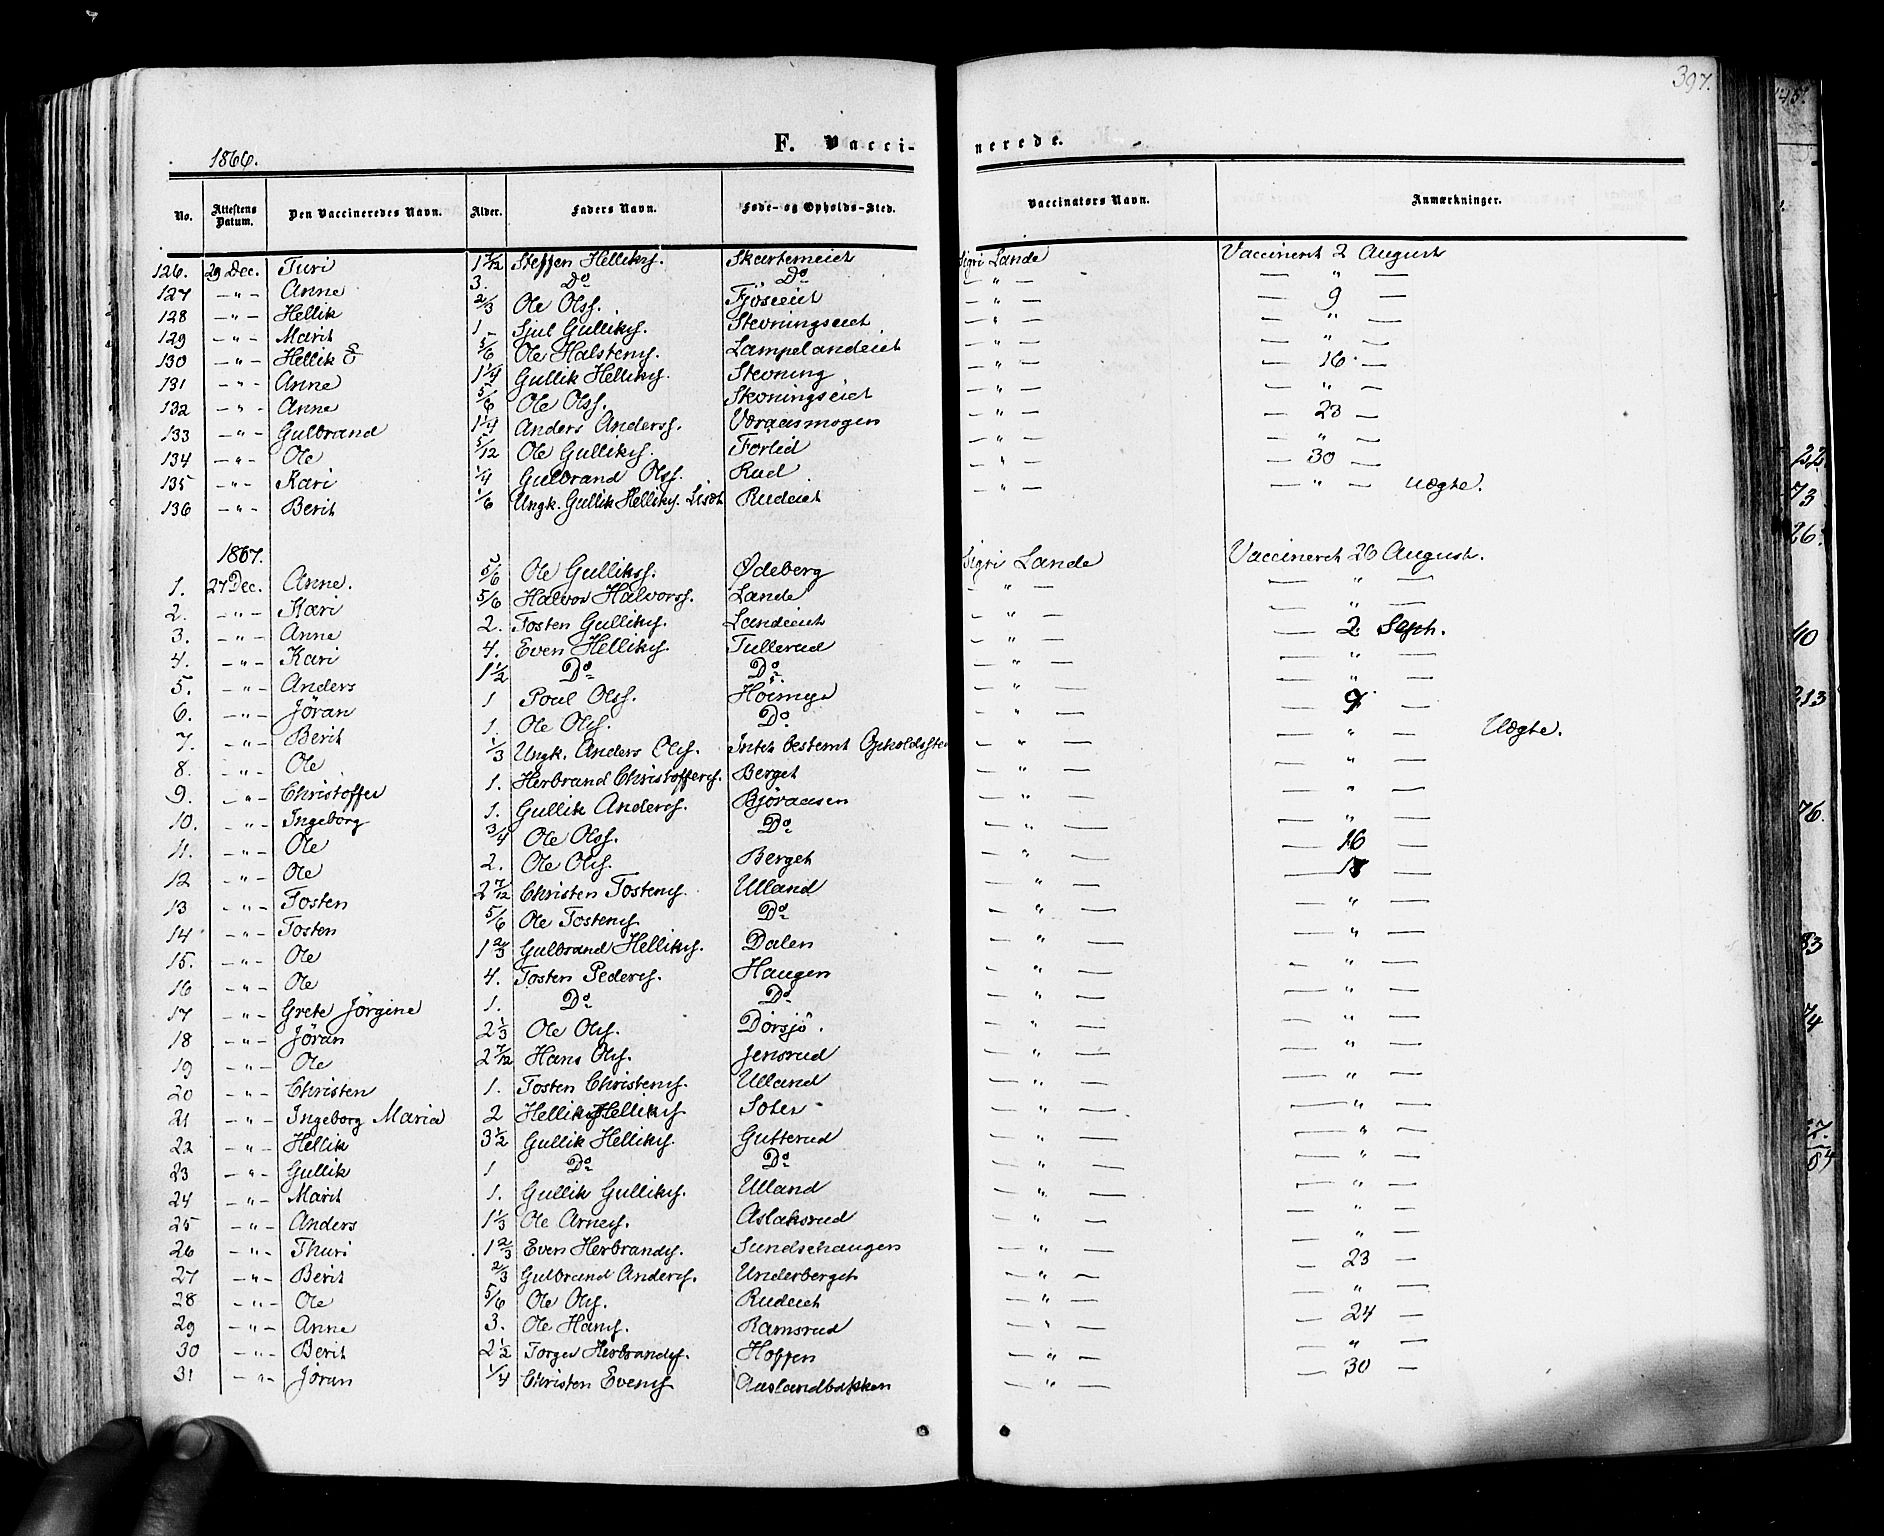 397.
1866.
F. Vaccinerede.
No. Attestens Datum. Den Vaccineredes Navn. Alder. Faders Navn. Føde- og Opholds-Sted. Vaccinators Navn. Anmærkninger.
126. 29 Dec. Turi 1 7/12 Steffen Helliks. Skartemeiet Sigri Lande Vaccineret 2 August
127 — " — Anne 3. Do Do — " — — " —
128 — " — Hellik 2/3 Ole Olss. Fjöseiet — " — — 9 —
129 — " — Marit 1 Sjul Gulliks. Stevningseiet — " — — " —
130 — " — Hellik 5/6 Ole Halstens. Lampelandeiet — " — — " —
131 — " — Anne 1 1/4 Gullik Helliks. Stevning — " — — 16 —
132 — " — Anne 5/6 Ole Olss. Stevningseiet — " — — " —
133 — " — Gulbrand 1 1/4 Anders Anderss. Væraasmogen — " — — 23 —
134 — " — Ole 5/12 Ole Gulliks. Forlid — " — — " —
135 — " — Kari 1/4 Gulbrand Olss. Rud — " — — 30 —
136 — " — Berit 1/6 Ungk. Gullik Helliks. Rudeiet — " — — " — uægte.
1867.
1. 27 Dec. Anne. 5/6 Ole Gullikss. Ødeberg Sigri Lande Vaccineret 26 August.
2. — " — Kari 5/6 Halvor Halvorss. Lande — " — — " —
3. — " — Anne 2. Tosten Gulliks. Landeiet — " — — " —
4. — " — Kari 4. Even Helliks. Tullerud — " — — 2 Sept.
5. — " — Anders 1 1/2 Do Do — " — — " —
6. — " — Jöran 1 Poul Olss. Höimye — " — — " —
7. — " — Berit 1. Ole Olss. Do — " — — 9 —
8. — " — Ole 1/3 Ungk. Anders Olss. Intet bestemt Opholdsste — " — — " — Uægte.
9. — " — Christoffer 1. Herbrand Christoffers. Berget — " — — " —
10. — " — Ingeborg 1. Gullik Anderss. Björaasen — " — — " —
11. — " — Ole 3/4 Ole Olss. Do — " — — " —
12 — " — Ole 2. Ole Olss. Berget — " — — 16 —
13 — " — Tosten 2 7/12 Christen Tostens. Ulland — " — — 18 —
14 — " — Tosten 5/6 Ole Tostens. Do — " — — " —
15. — " — Ole 1 2/3 Gulbrand Helliks. Dalen — " — — " —
16 — " — Ole 4. Tosten Peders. Haugen — " — — " —
17 — " — Grete Jörgine 1. Do Do — " — — " —
18 — " — Jöran 2 1/3 Ole Olss. Dorsjö. — " — — " —
19 — " — Ole 2 7/12 Hans Olss. Jensrud — " — — " —
20 — " — Christen 1. Tosten Christens. Ulland — " — — " —
21 — " — Ingeborg Maria 2 Hellik Helliks. Soter — " — — " —
22 — " — Hellik 3 1/2 Gullik Helliks. Gutterud — " — — " —
23 — " — Gullik 1 Do Do — " — — " —
24 — " — Marit 1. Gullik Gulliks. Ulland — " — — " —
25 — " — Anders 1 1/3 Ole Arnes. Aslaksrud — " — — " —
26 — " — Thuri 1 2/3 Even Herbrands. Sundsehaugen — " — — " —
27 — " — Berit 2/3 Gulbrand Anders. Underberget — " — — 23 —
28 — " — Ole 5/6 Ole Olss. Rudeiet — " — — " —
29 — " — Anne 3. Ole Hans. Ramsrud — " — — 24 —
30 — " — Berit 2 1/2 Torger Herbrands. Hoffen — " — — " —
31 — " — Jöran 1/4 Christen Evens. Aaslandbakken — " — — 30 —